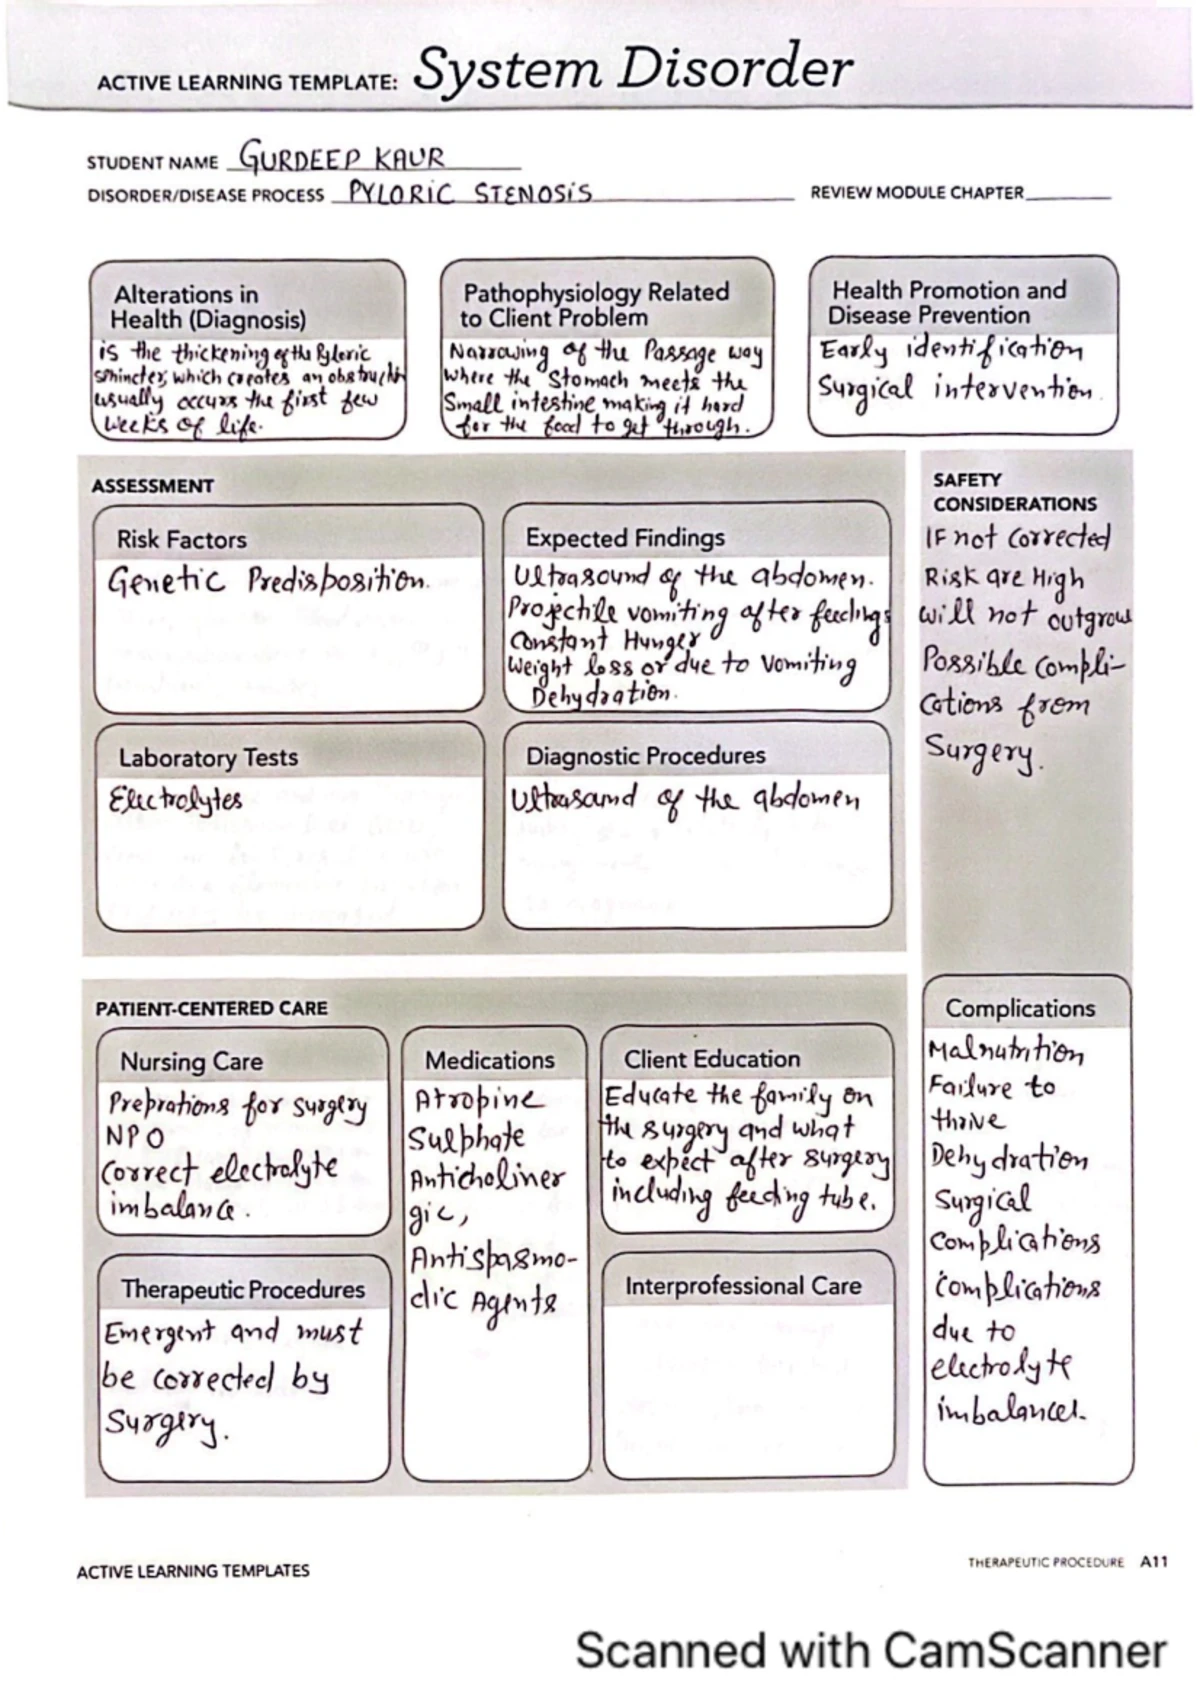 ACTIVE LEARNING TEMPLATE: System Disorder
STUDENT NAME GURDEEP KAUR
DISORDER/DISEASE PROCESS PYLORIC STENOSIS REVIEW MODULE CHAPTER
Alterations in
Health (Diagnosis)
is the thickening of the Pyloric
sphincter, which creates an obstruction
usually occurs the first few
weeks of life.
Pathophysiology Related
to Client Problem
Narrowing of the Passage way
where the Stomach meets the
Small intestine making it hard
for the food to get through.
Health Promotion and
Disease Prevention
Early identification
Surgical intervention.
ASSESSMENT
Risk Factors
Genetic Predisposition.
Expected Findings
Ultrasound of the abdomen.
Projectile vomiting after feedings
Constant Hunger
Weight loss or due to vomiting
Dehydration.
Laboratory Tests
Electrolytes
Diagnostic Procedures
Ultrasound of the abdomen
SAFETY
CONSIDERATIONS
IF not corrected
Risk are High
will not outgrow
Possible compli-
cations from
Surgery.
PATIENT-CENTERED CARE
Nursing Care
Preprations for surgery
NPO
Correct electrolyte
imbalance.
Medications
Atropine
Sulphate
Anticholiner
gic,
Antispasmo-
dic Agents
Client Education
Educate the family on
the surgery and what
to expect after surgery
including feeding tube.
Therapeutic Procedures
Emergent and must
be corrected by
Surgery.
Interprofessional Care
Complications
Malnutrition
Failure to
thrive
Dehydration
Surgical
Complications
complications
due to
electrolyte
imbalances.
ACTIVE LEARNING TEMPLATES
THERAPEUTIC PROCEDURE A11
Scanned with CamScanner